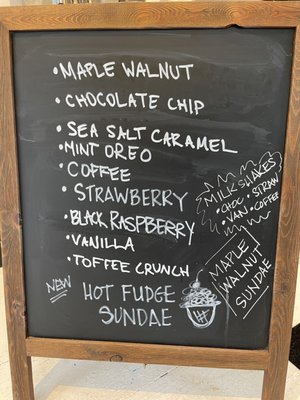 • MAPLE WALNUT
• CHOCOLATE CHIP
• SEA SALT CARAMEL
• MINT OREO
• COFFEE
• STRAWBERRY
• BLACK RASPBERRY
• VANILLA
• TOFFEE CRUNCH
NEW HOT FUDGE
SUNDAE
MILK SHAKES
• CHOC • STRAW
• VAN • COFFEE
MAPLE
WALNUT
SUNDAE